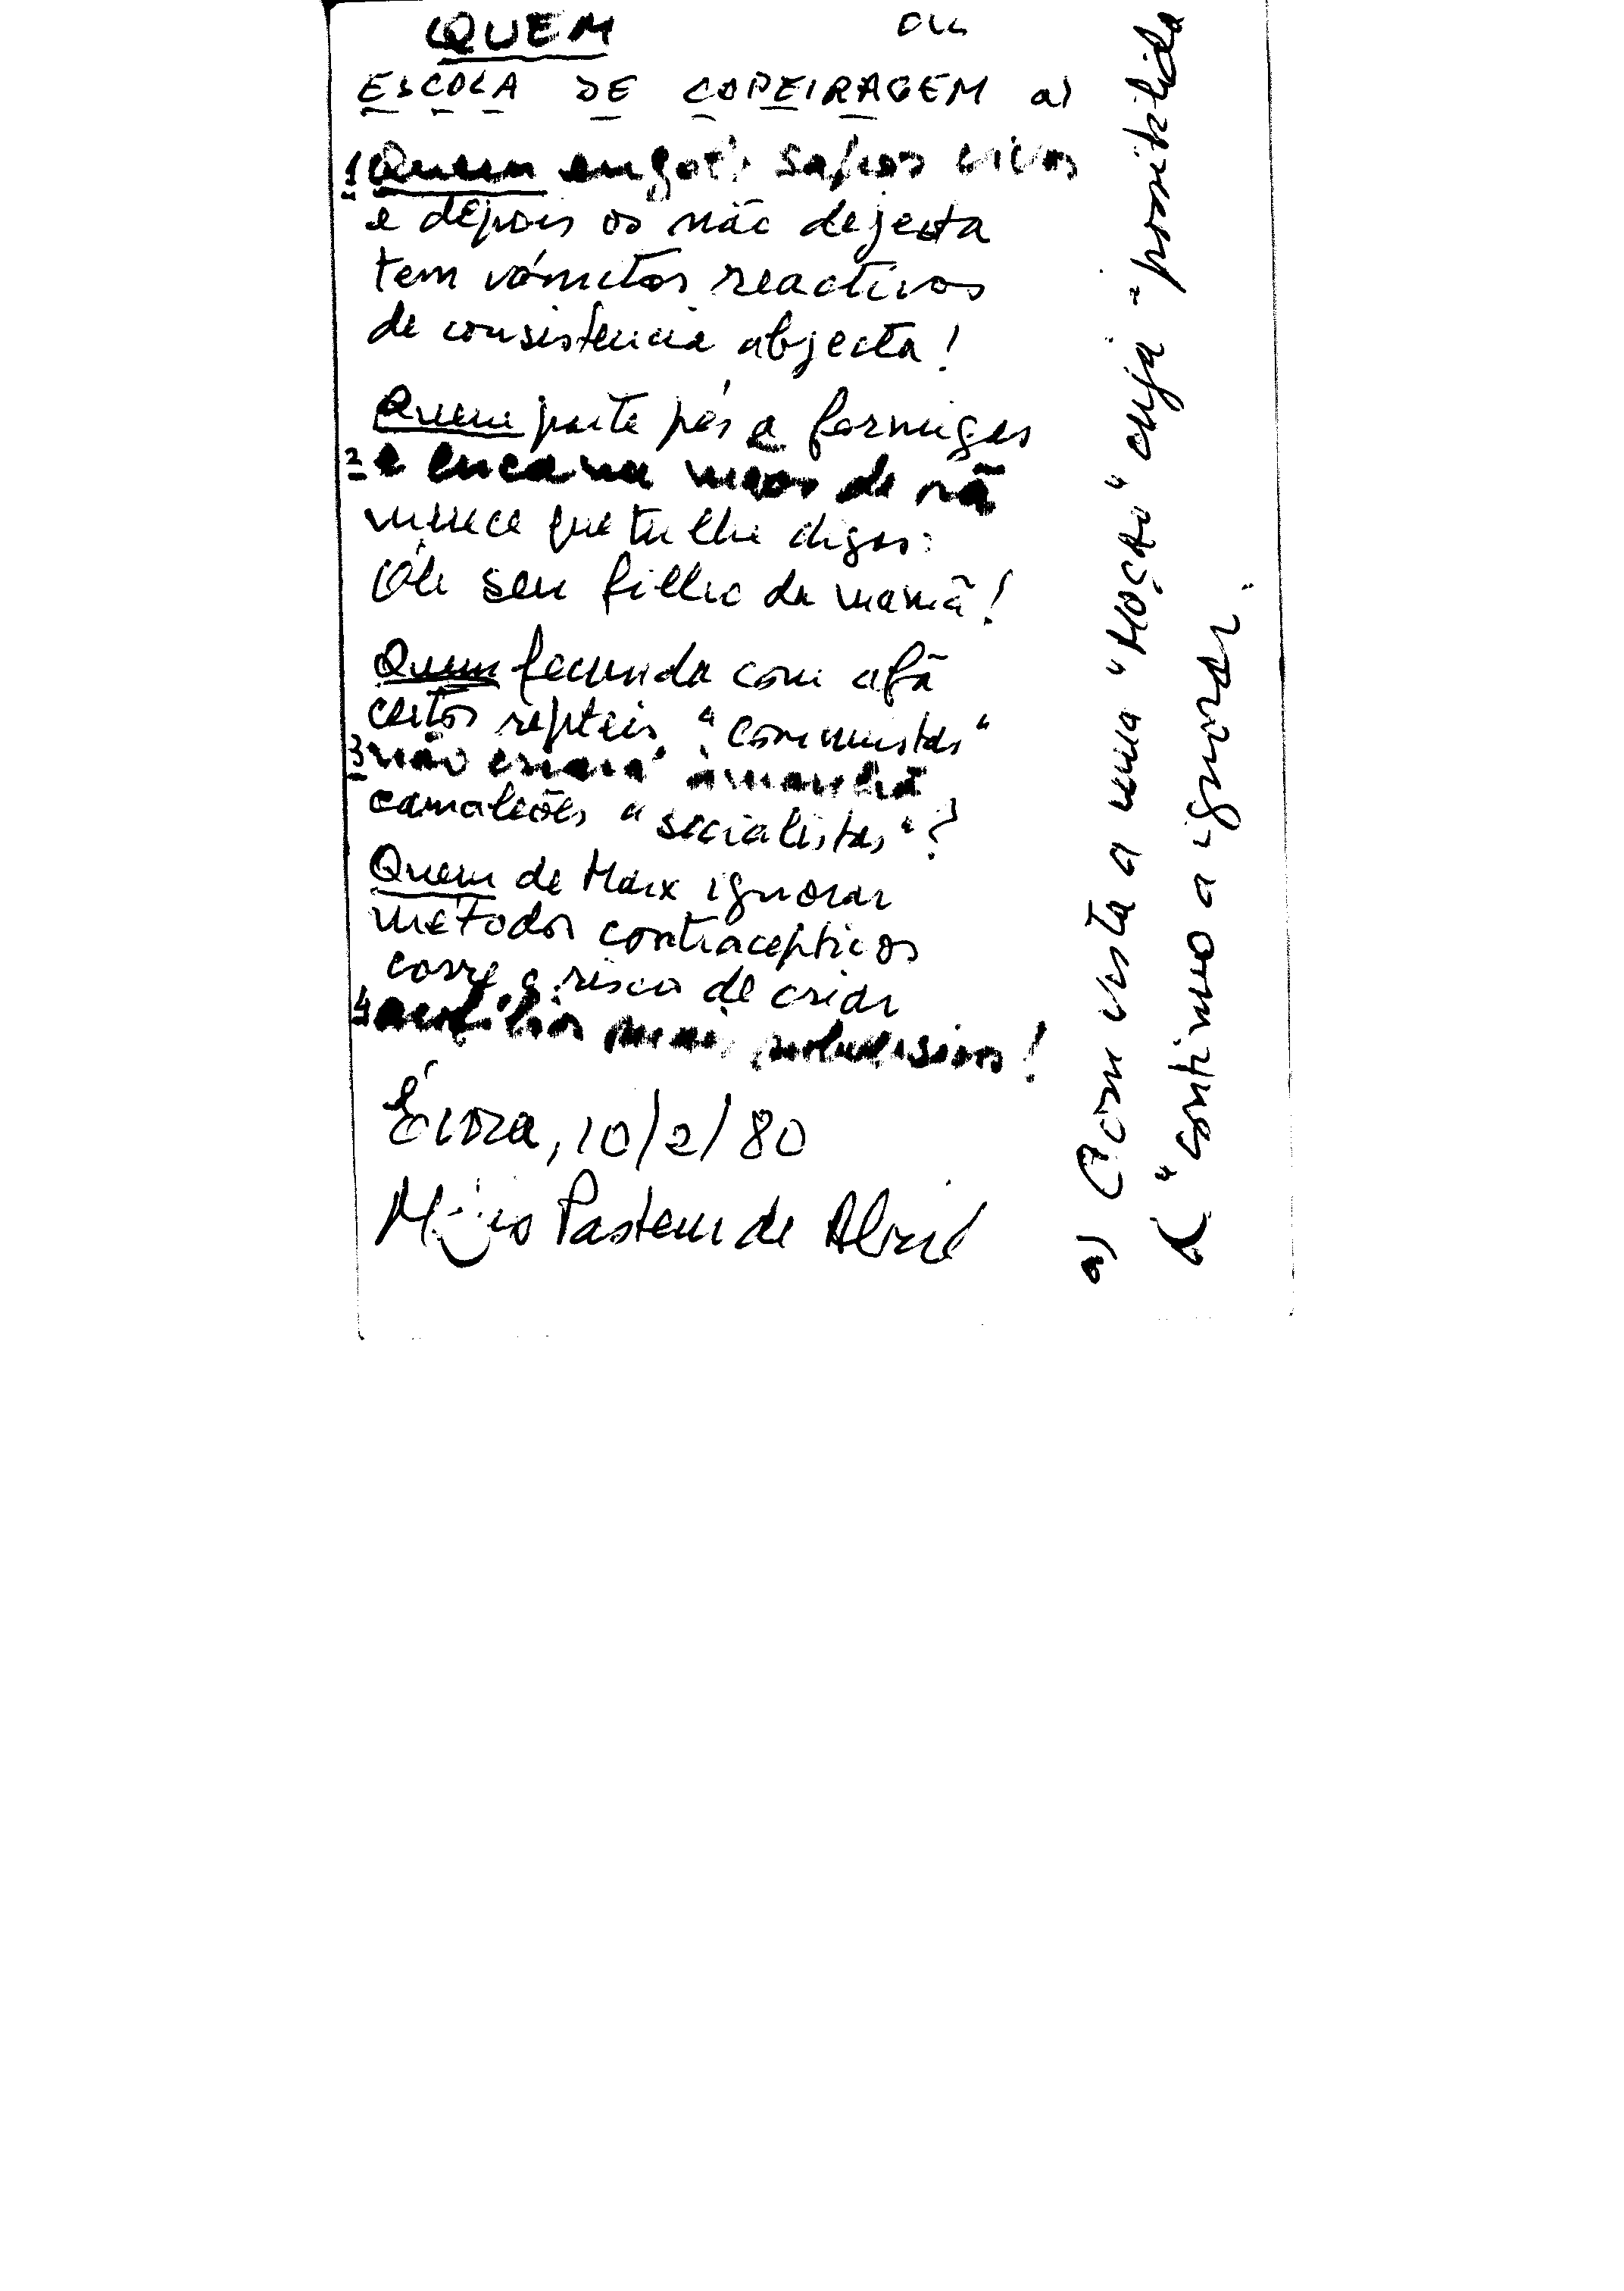 QUEM ou
ESCOLA DE COPEIRAGEM a)
1 Quem engole sapos vivos
e depois os não dejecta
tem vómitos reactivos
de consistencia abjecta!
Quem parte pés a formigas
2 e encana mãos de rã
merece que tu lhe digas:
Olé seu filho da mamã!
Quem fecunda com afã
certos répteis "comunistas"
3 não criará àmanhã
camaleões "socialistas"?
Quem de Marx ignorar
métodos contraceptivos
corre o risco de criar
4 anfíbios mais
Évora, 10/2/80
Mário Pasteur de Abreu
a) Com vista a uma "Moção" cuja "possibilida
"continuo a ignorar.